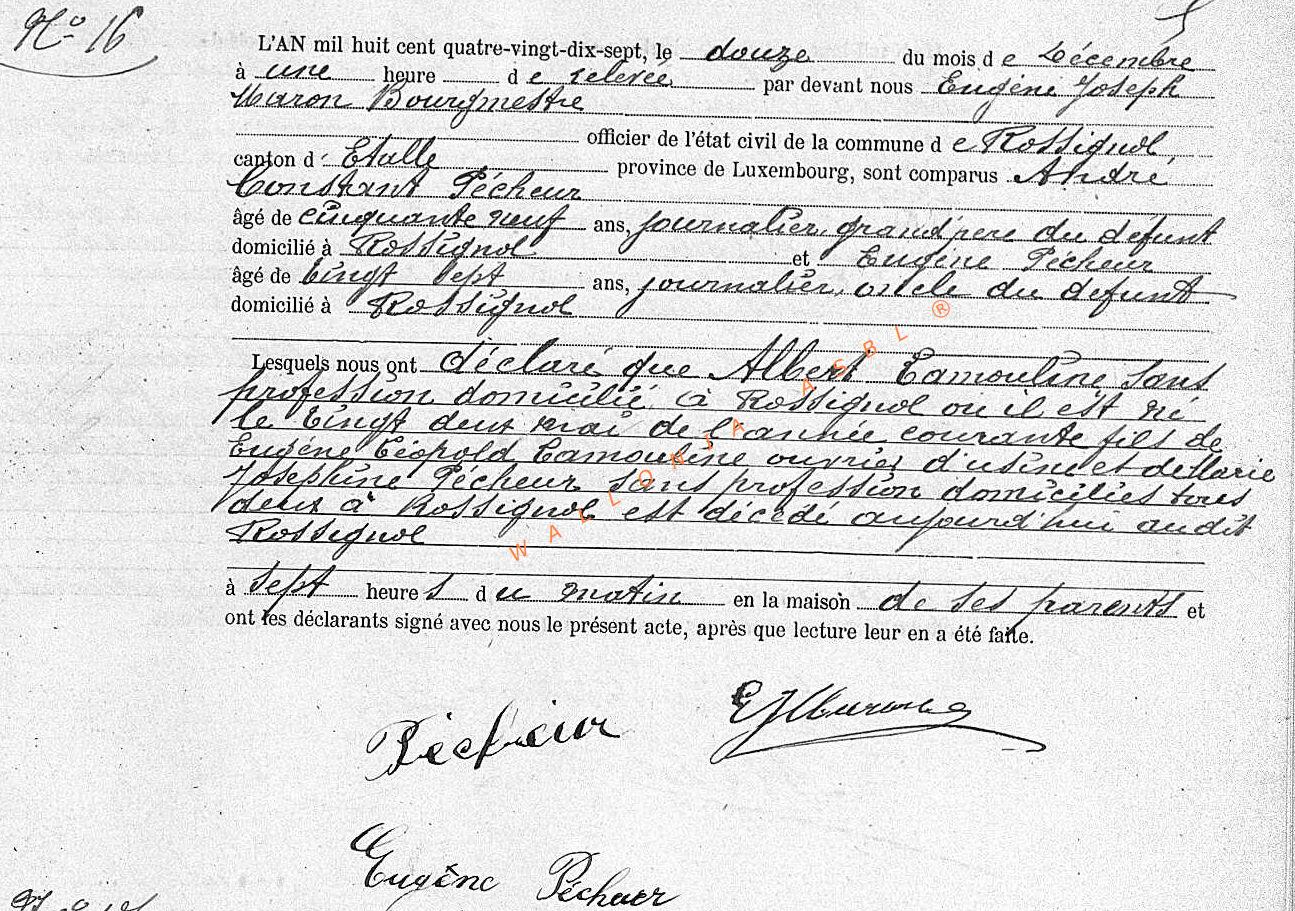 N° 16
L'AN mil huit cent quatre-vingt-dix-sept, le douze du mois d e Décembre
à une heure d e relevée par devant nous Eugène Joseph
Maron Bourgmestre
officier de l'état civil de la commune d e Rossignol,
canton d' Etalle province de Luxembourg, sont comparus André
Constant Pécheur
âgé de cinquante neuf ans, journalier, grand père du défunt
domicilié à Rossignol et Eugène Pécheur
âgé de vingt sept ans, journalier, oncle du défunt
domicilié à Rossignol
Lesquels nous ont déclaré que Albert Lamouline, sans
profession domicilié à Rossignol où il est né
le vingt deux mai de l'année courante fils de
Eugène Léopold Lamouline ouvrier d'usine et de Marie
Joséphine Pécheur sans profession domiciliés tous
deux à Rossignol est décédé aujourd'hui audit
Rossignol
à sept heure s d u matin en la maison de ses parents et
ont les déclarants signé avec nous le présent acte, après que lecture leur en a été faite.
WALLONIA ASBL ®
Pécheur EJMaron
Eugène Pécheur